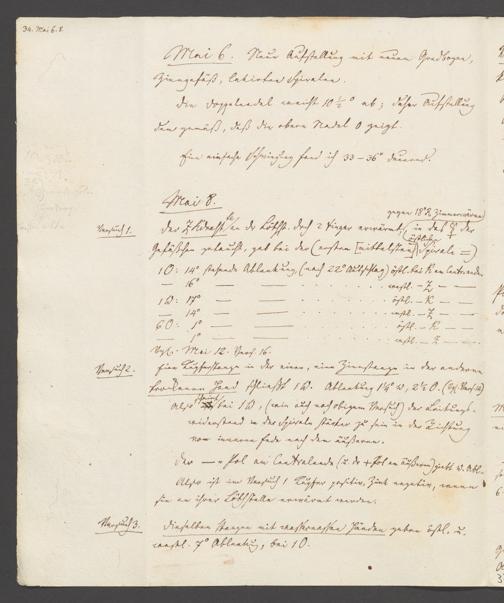 34. Mai 6. 8.
Mai 6. Neue Aufstellung mit neuem Gradbogen,
Zinngefäß, lakirten Spiralen.
Die Doppelnadel weicht 10 1/2° ab; daher Aufstellung
dem gemäß, daß die obere Nadel 0 zeigt.
Eine einfache Schwingung fand ich 33–36" dauernd.
Mai 8.
gegen 18° R. Zimmerwärme
Versuch 1. Der ZKdraht an der Löthst. durch 2 Finger erwärmt, in das der
Gefäßchen getaucht, gab bei der (mittelsten) Spirale
1 O: 14° stehende Ablenkung (nach 22° Ausschlag) östl. bei K am Centralende
— 16° — — westl. – Z — —
1 W: 17° — — östl. – K — —
— 14° — — westl. – Z — —
6 O: 1° — — östl. – K — —
— 1° — — westl. – Z — —
Vgl. Mai 12. Vers. 16.
Versuch 2. Eine Kupferstange in der einen, eine Zinkstange in der anderen
trockenen Hand schließt 1 W. Ablenkung
Also scheint bei 1 W, (wie auch nach obigem Versuch) der Leitungs-
widerstand in der Spirale stärker zu sein in der Richtung
vom inneren Ende nach dem äußeren.
Der — Pol am Centralende (u. der + Pol am äußeren) giebt w. Abl.
Also ist im Versuch 1 Kupfer positiv, Zink negativ, wenn
sie an ihrer Löthstelle erwärmt werden.
Versuch 3. Dieselben Stangen mit Händen geben östl. u.
westl. 7° Ablenkung, bei 1 O.